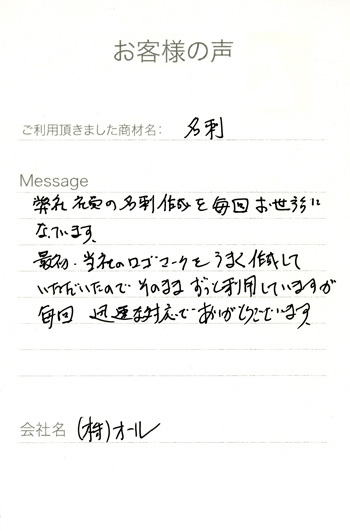 お客様の声
ご利用頂きました商材名： 名刺
Message
弊社社員の名刺作成を毎回お世話に
なっています。
最初、当社のロゴマークをうまく作成して
いただいたので そのまま ずっと利用していますが
毎回 迅速な対応で ありがとうございます。
会社名 (株)オール